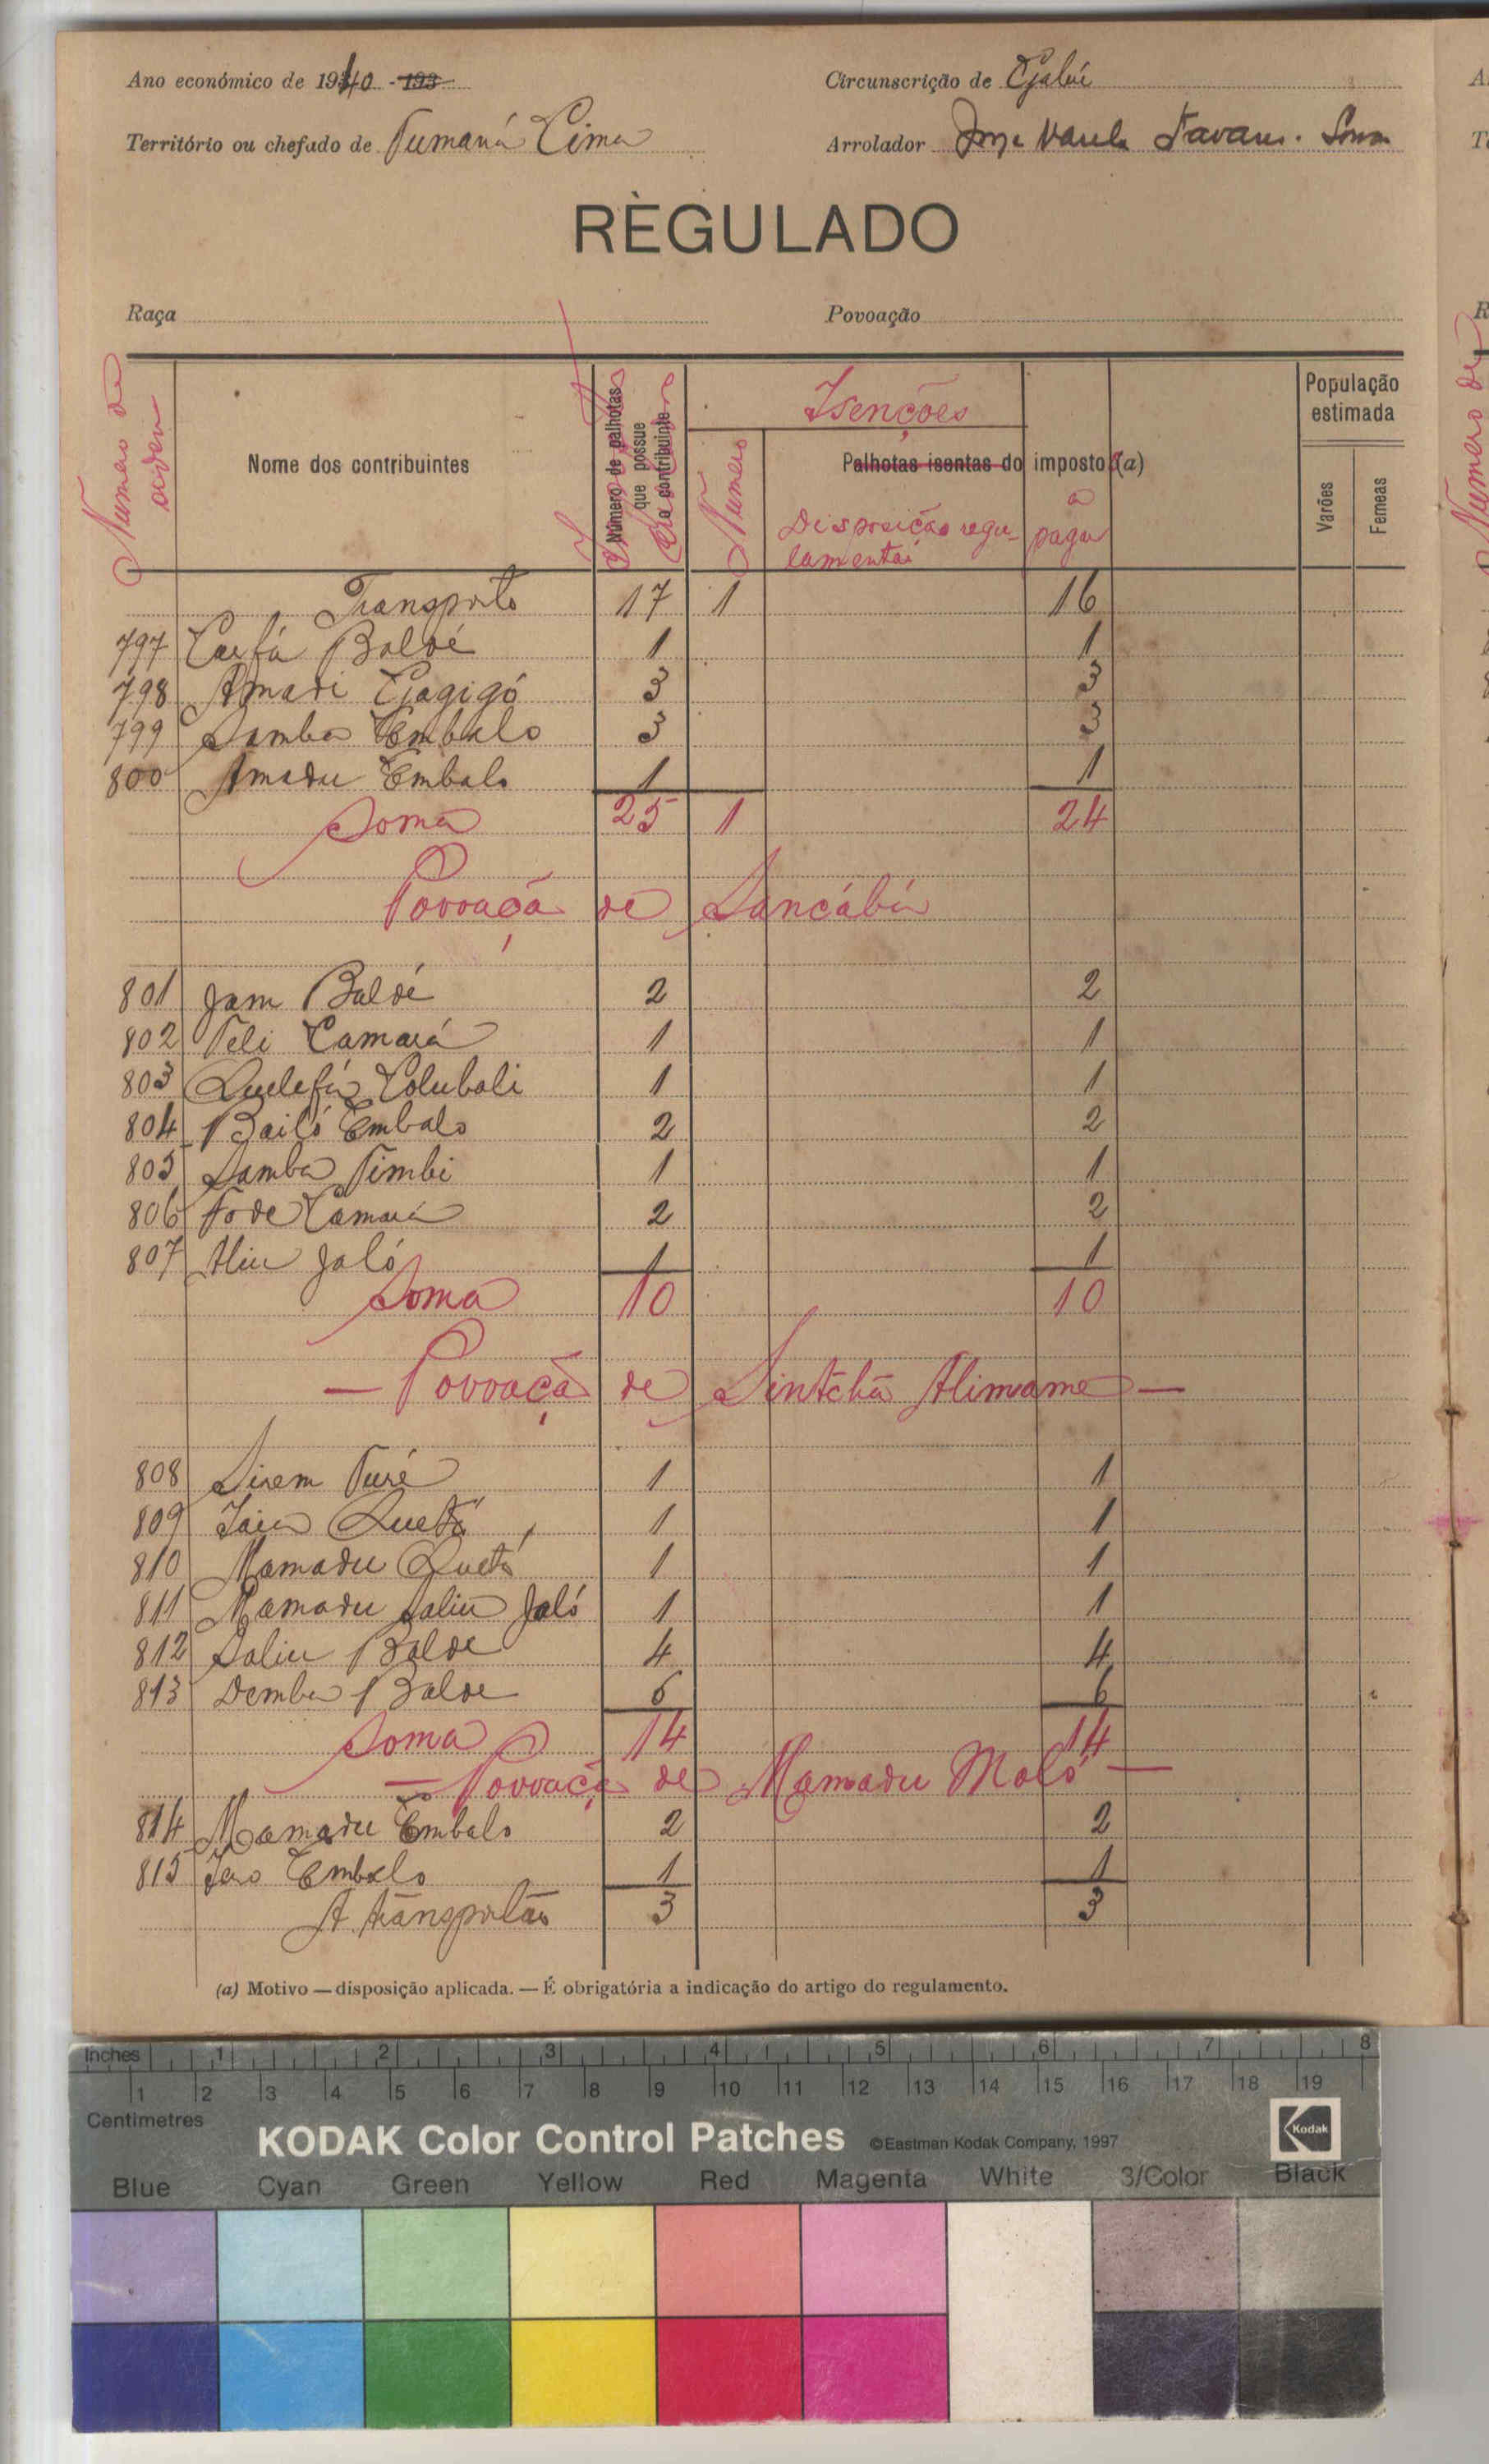 Ano económico de 1940 - 193
Circunscrição de Gabú
Território ou chefado de Tumaná Cima
Arrolador Tavares
RÈGULADO
Raça
Povoação
Numero de ordem
Nome dos contribuintes
Número de palhotas que possue o contribuinte
Isenções
Numero
Palhotas isentas do imposto (a)
Disposição regulamentar
a pagar
População estimada
Varões
Femeas
Transporte 17 1 16
797 Baldé 1 1
798 Amadi 3 3
799 Samba Embalo 3 3
800 Amadu Embalo 1 1
Soma 25 1 24
Povoação de Sancábú
801 Jam Baldé 2 2
802 Teli Camará 1 1
803 Quelefá Colubali 1 1
804 Bailó Embalo 2 2
805 Samba Timbi 1 1
806 Fode Camará 2 2
807 Aliu Jaló 1 1
Soma 10 10
— Povoação de Sintchã Alimame —
808 Sirem Turé 1 1
809 Quetá 1 1
810 Mamadu Quetá 1 1
811 Mamadu Saliu Jaló 1 1
812 Saliu Balde 4 4
813 Demba Balde 6 6
Soma 14 14
— Povoação de Mamadu Moló —
814 Mamadu Embalo 2 2
815 Embalo 1 1
A transportar 3 3
(a) Motivo — disposição aplicada. — É obrigatória a indicação do artigo do regulamento.
Inches 1 2 3 4 5 6 7 8
1 2 3 4 5 6 7 8 9 10 11 12 13 14 15 16 17 18 19
Centimetres
KODAK Color Control Patches ©Eastman Kodak Company, 1997 Kodak
Blue Cyan Green Yellow Red Magenta White 3/Color Black